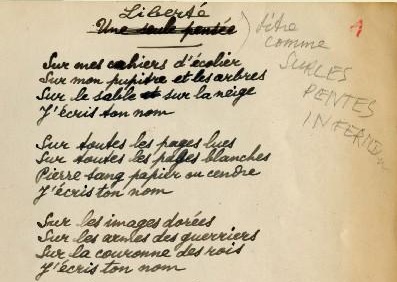 Liberté
Une seule pensée
titre
comme
SUR LES
PENTES
INFERIEU
1
Sur mes cahiers d'écolier
Sur mon pupitre et les arbres
Sur le sable et sur la neige
J'écris ton nom
Sur toutes les pages lues
Sur toutes les pages blanches
Pierre sang papier ou cendre
J'écris ton nom
Sur les images dorées
Sur les armes des guerriers
Sur la couronne des rois
J'écris ton nom